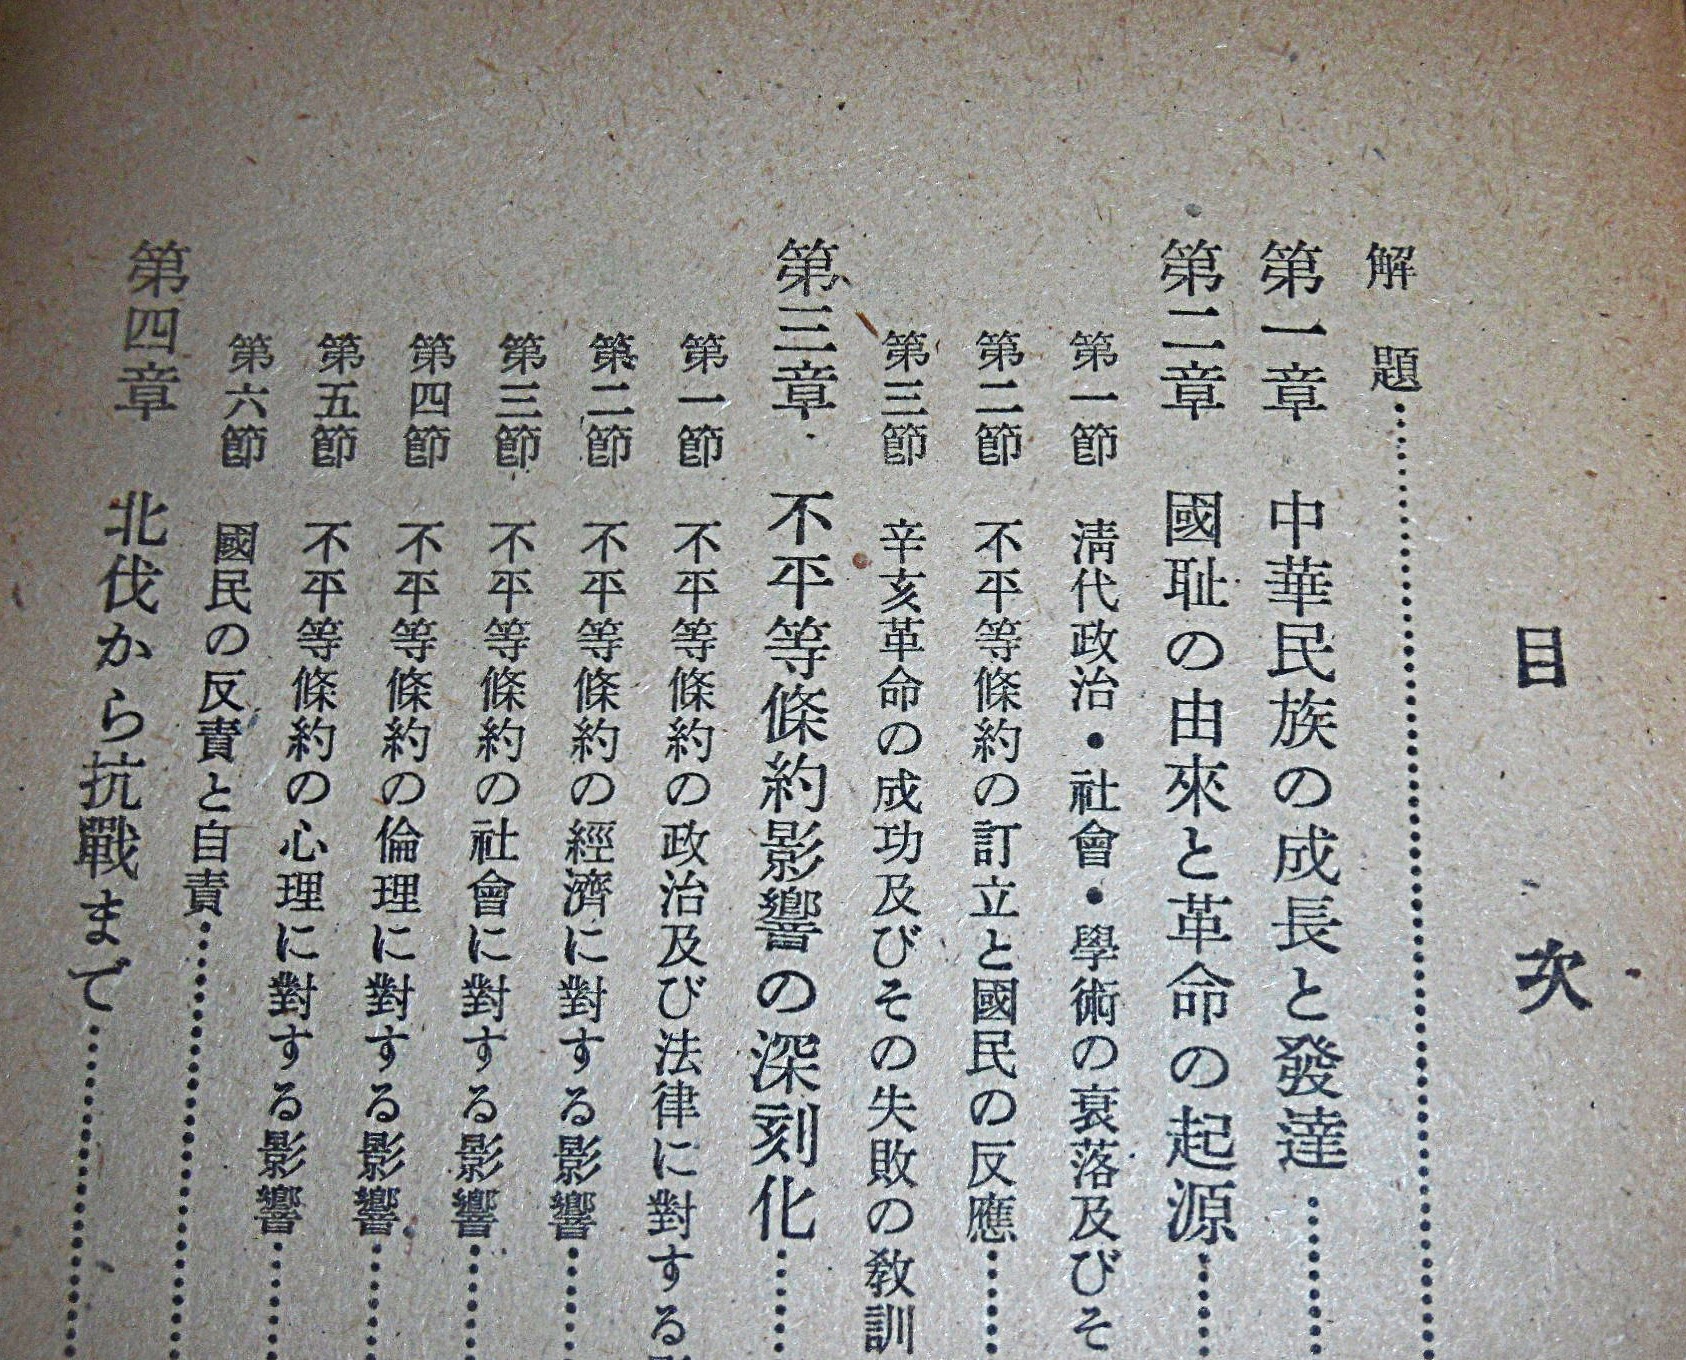 目次
解題
第一章 中華民族の成長と發達
第二章 國耻の由來と革命の起源
第一節 淸代政治・社會・學術の衰落及びそ
第二節 不平等條約の訂立と國民の反應
第三節 辛亥革命の成功及びその失敗の敎訓
第三章 不平等條約影響の深刻化
第一節 不平等條約の政治及び法律に對する
第二節 不平等條約の經濟に對する影響
第三節 不平等條約の社會に對する影響
第四節 不平等條約の倫理に對する影響
第五節 不平等條約の心理に對する影響
第六節 國民の反責と自責
第四章 北伐から抗戰まで